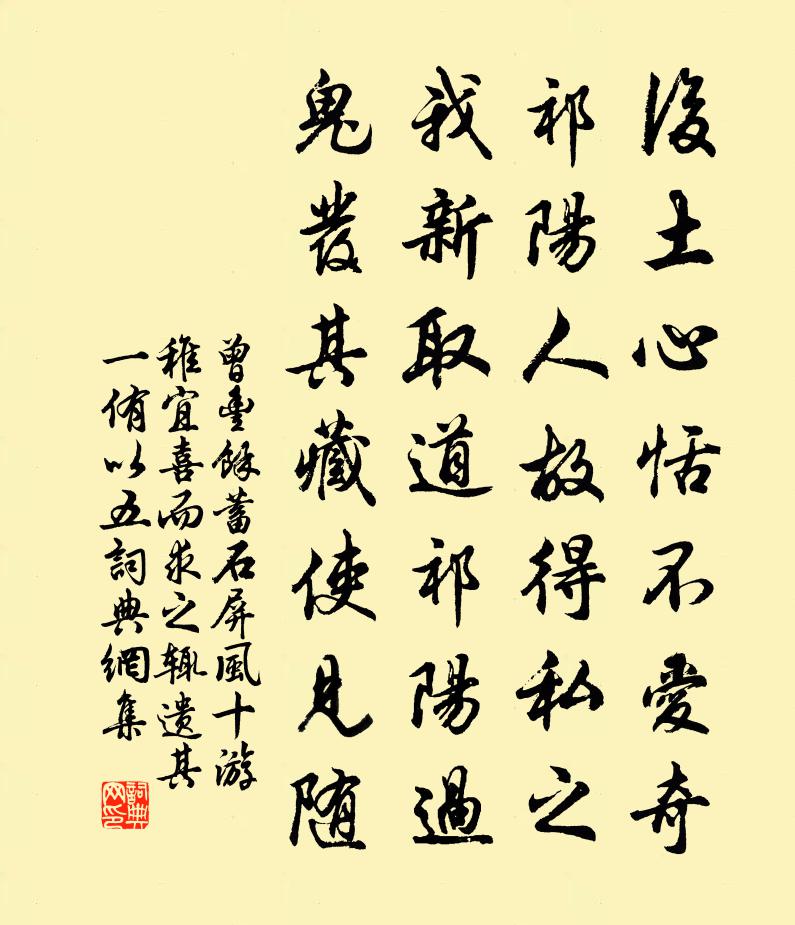 後土心恬不愛奇
祁陽人故得私之
我新取道祁陽過
鬼發其藏使見随
曾豊餘蓄石屏風十游
稚宜喜而求之輙遗其
一侑以五詞典網集
詞典网印